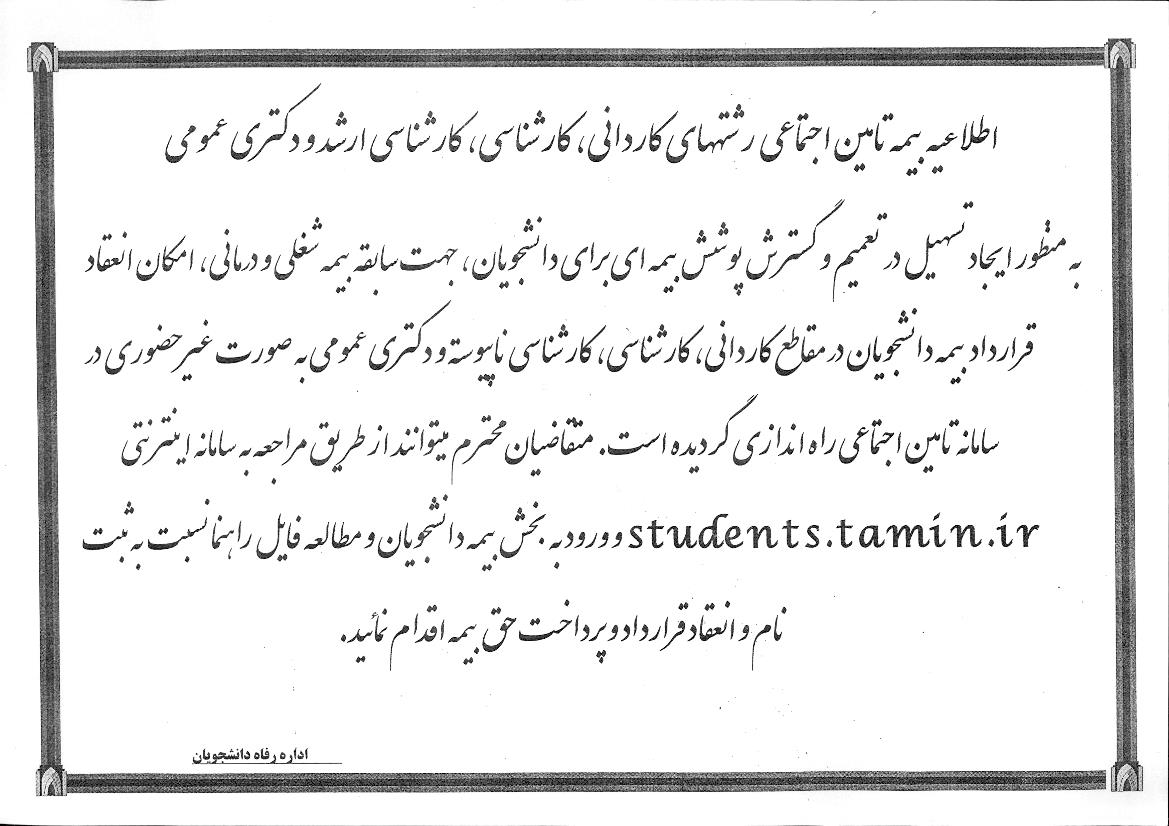 اطلاعیه بیمه تامین اجتماعی رشتهای کاردانی، کارشناسی، کارشناسی ارشد و دکتری عمومی
به منظور ایجاد تسهیل در تعمیم و گسترش پوشش بیمه ای برای دانشجویان، جهت سابقه بیمه شغلی و درمانی، امکان انعقاد
قرارداد بیمه دانشجویان در مقاطع کاردانی، کارشناسی، کارشناسی ناپیوسته و دکتری عمومی به صورت غیر حضوری در
سامانه تامین اجتماعی راه اندازی گردیده است. متقاضیان محترم میتوانند از طریق مراجعه به سامانه اینترنتی
students.tamin.ir و ورود به بخش بیمه دانشجویان و مطالعه فایل راهنما نسبت به ثبت
نام و انعقاد قرارداد و پرداخت حق بیمه اقدام نمائید.
اداره رفاه دانشجویان